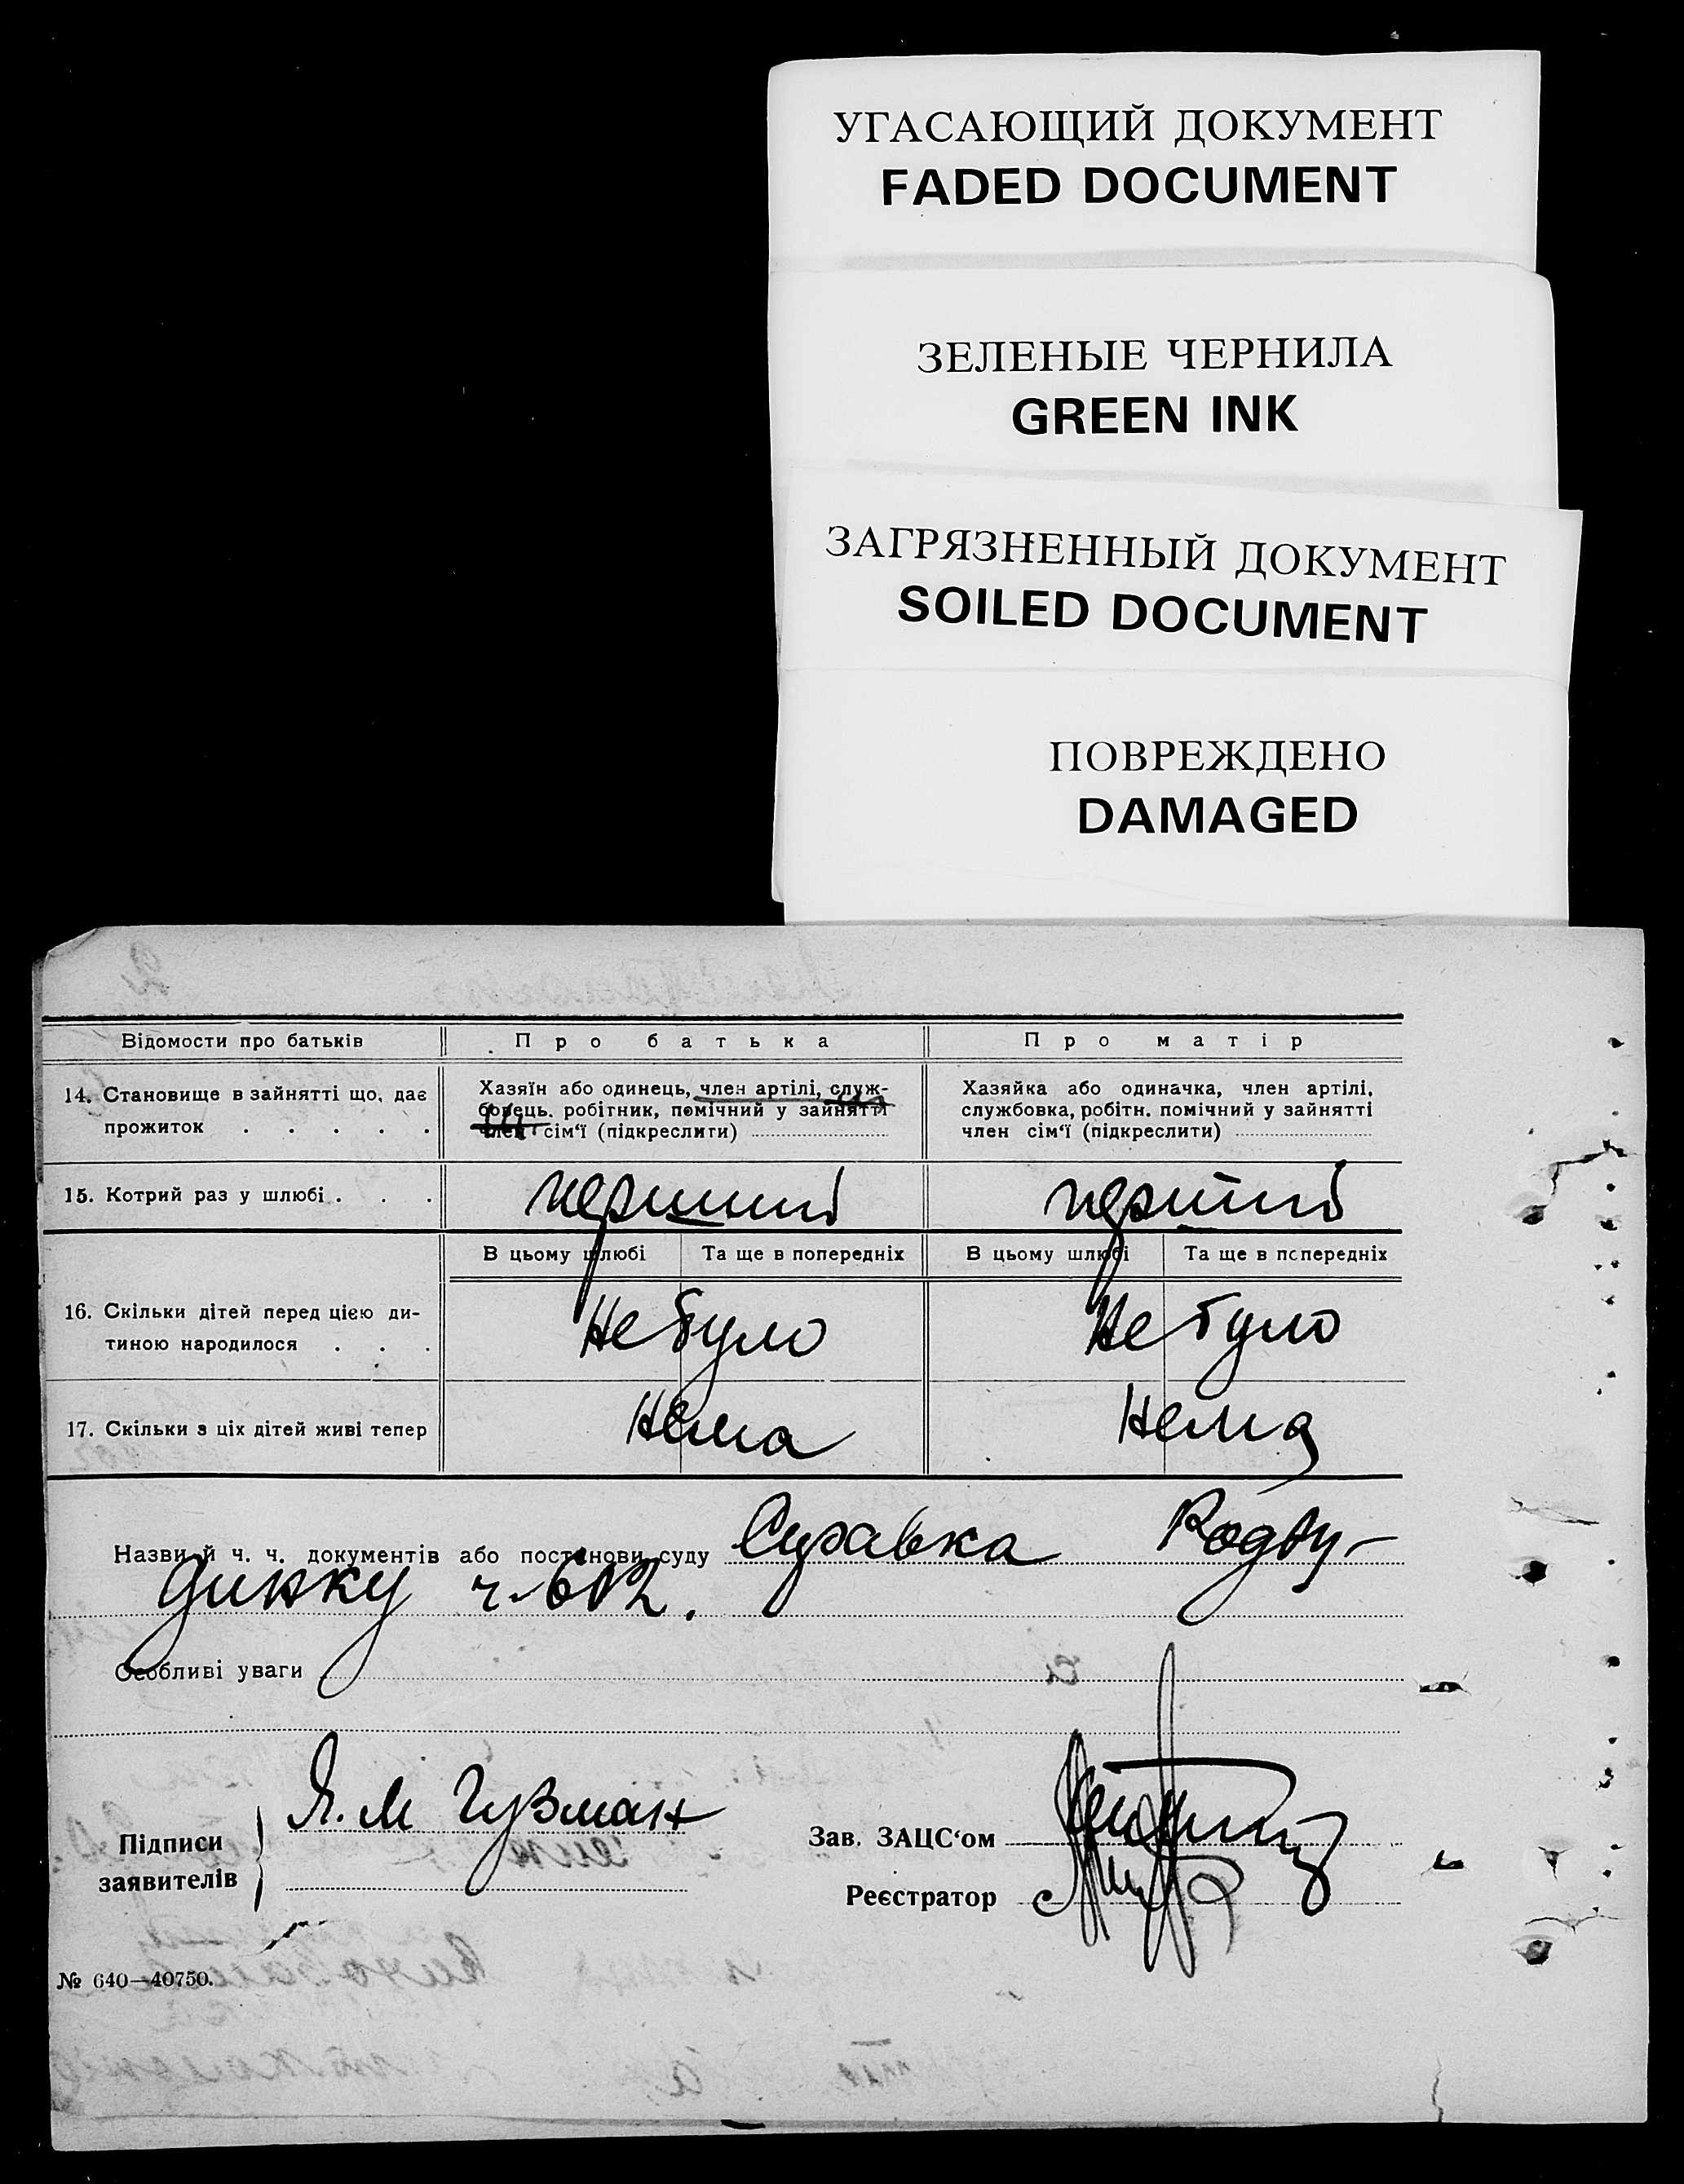 УГАСАЮЩИЙ ДОКУМЕНТ
FADED DOCUMENT
ЗЕЛЕНЫЕ ЧЕРНИЛА
GREEN INK
ЗАГРЯЗНЕННЫЙ ДОКУМЕНТ
SOILED DOCUMENT
ПОВРЕЖДЕНО
DAMAGED
2
Відомости про батьків Про батька Про матір
14. Становище в зайнятті що, дає прожиток . . . . .
Хазяїн або одинець, член артілі, служ-
бовець. робітник, помічний у зайнятті
член сім'ї (підкреслити)
Хазяйка або одиначка, член артілі,
службовка, робітн. помічний у зайнятті
член сім'ї (підкреслити)
15. Котрий раз у шлюбі . . . перший перший
В цьому шлюбі Та ще в попередніх В цьому шлюбі Та ще в попередніх
16. Скільки дітей перед цією ди-
тиною народилося . . . Не було Не було
17. Скільки з ціх дітей живі тепер Нема Нема
Назви й ч. ч. документів або постанови суду Справка Родбу-
динку ч. 602.
Особливі уваги
Підписи
заявителів
Я. М Гузман
Зав. ЗАЦС'ом
Реєстратор
№ 640—40750.